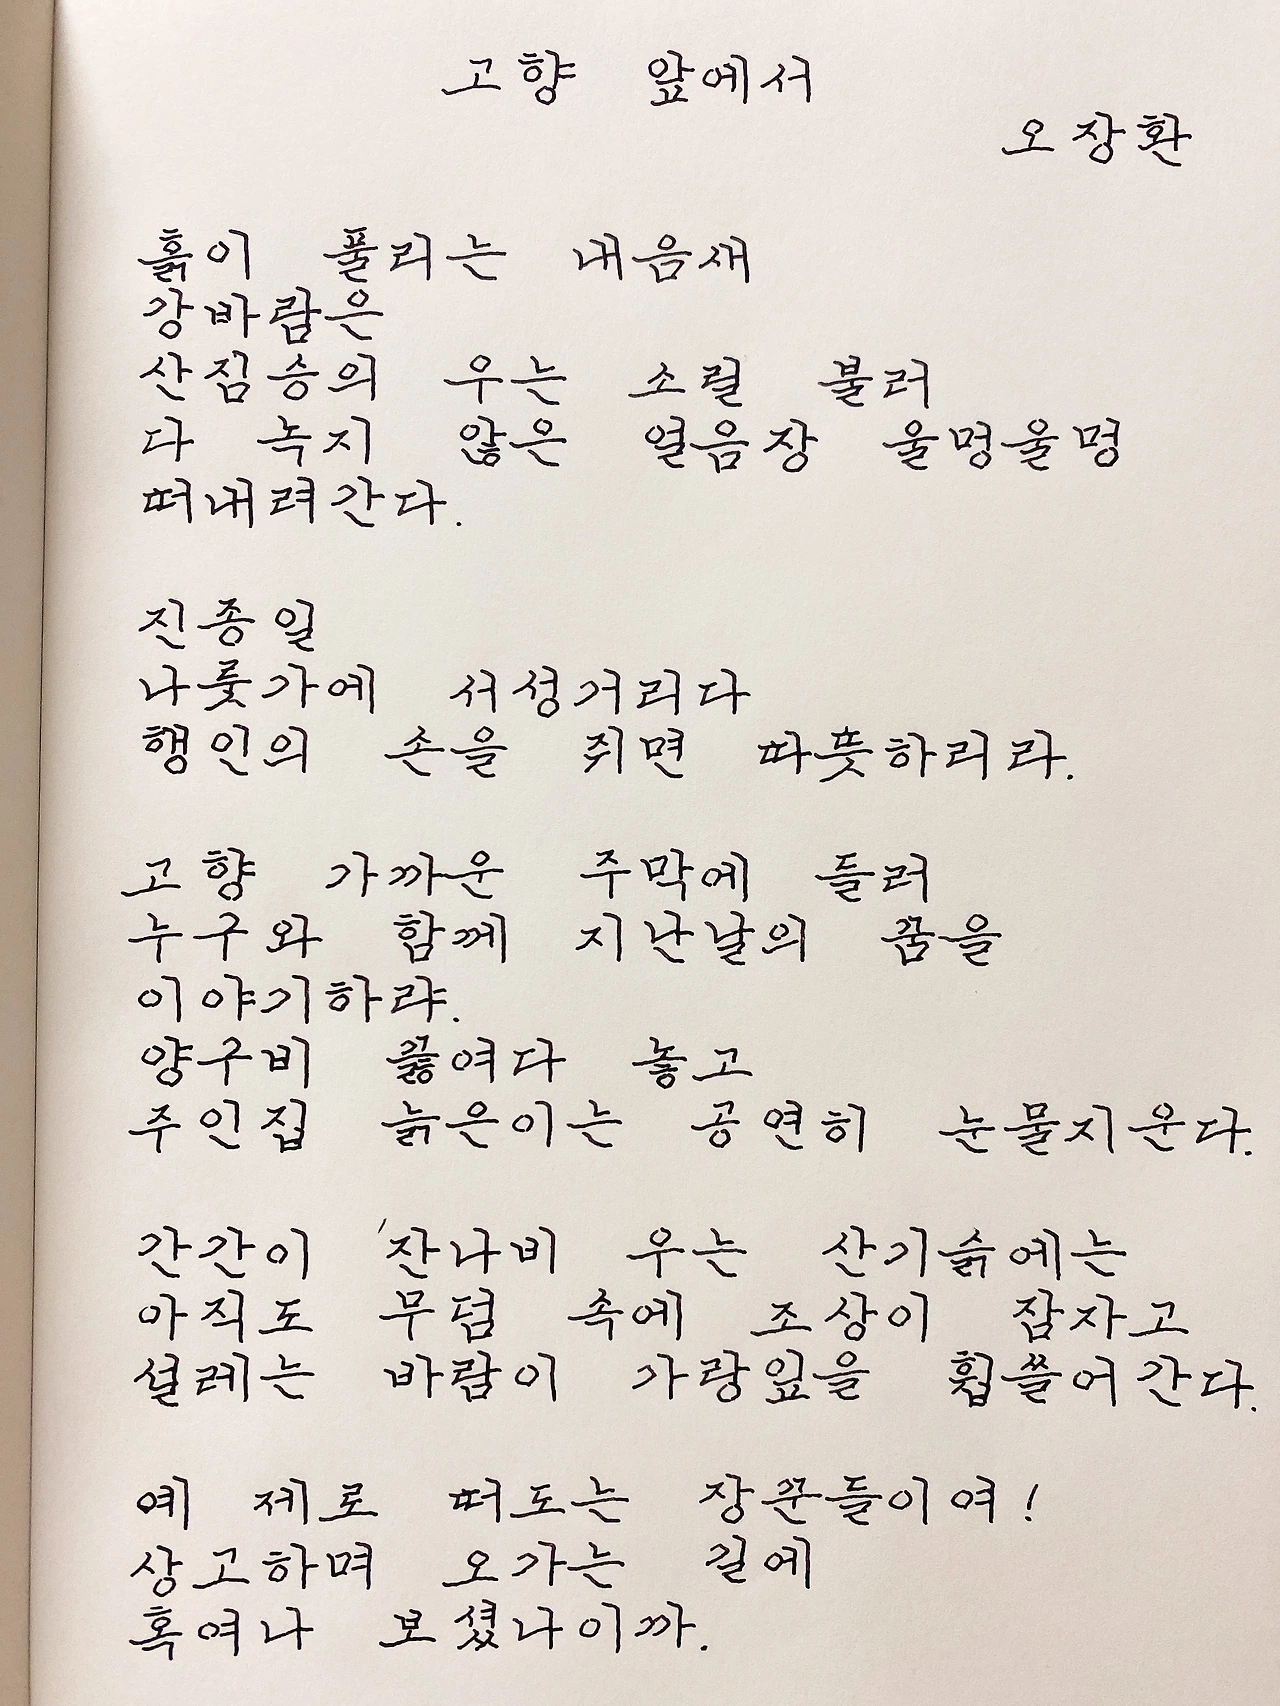 고향 앞에서
오장환
흙이 풀리는 내음새
강바람은
산짐승의 우는 소릴 불러
다 녹지 않은 얼음장 울멍울멍
떠내려간다.
진종일
나룻가에 서성거리다
행인의 손을 쥐면 따뜻하리라.
고향 가까운 주막에 들러
누구와 함께 지난날의 꿈을
이야기하랴.
양구비 끓여다 놓고
주인집 늙은이는 공연히 눈물지운다.
간간이 잔나비 우는 산기슭에는
아직도 무덤 속에 조상이 잠자고
설레는 바람이 가랑잎을 휩쓸어간다.
예 제로 떠도는 장꾼들이여!
상고하며 오가는 길에
혹여나 보셨나이까.